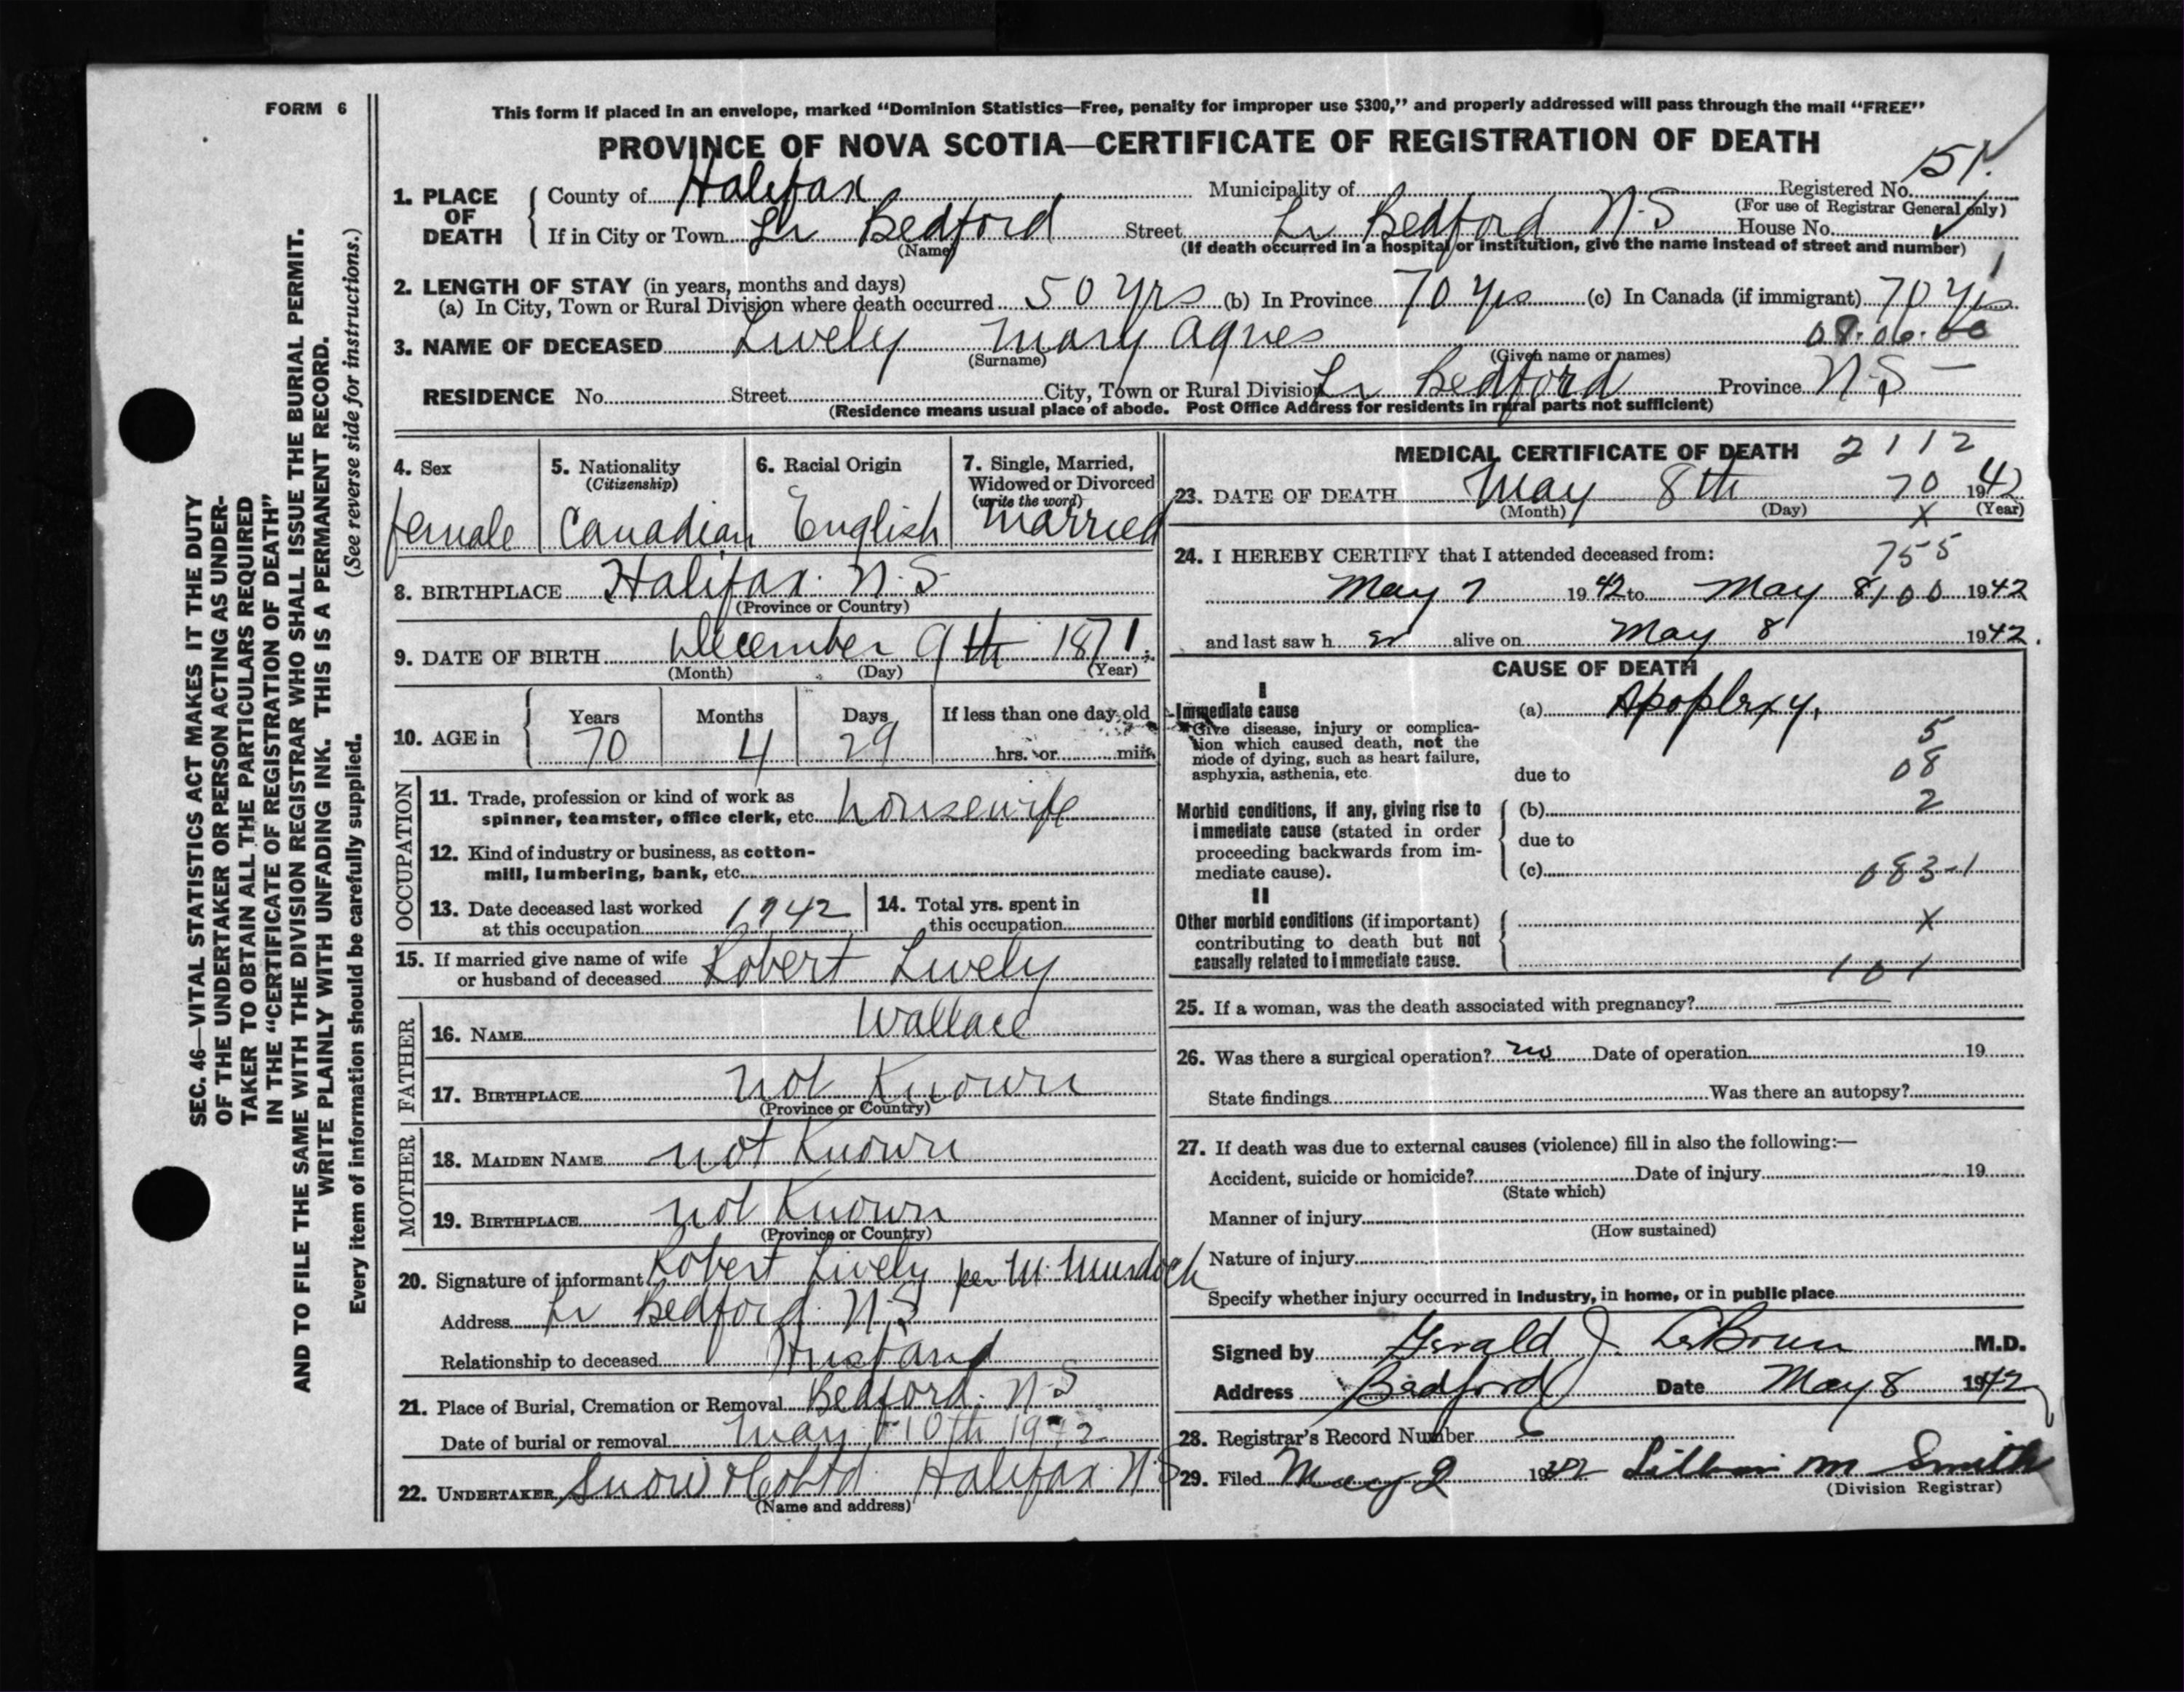 FORM 6
This form if placed in an envelope, marked "Dominion Statistics—Free, penalty for improper use $300," and properly addressed will pass through the mail "FREE"
PROVINCE OF NOVA SCOTIA—CERTIFICATE OF REGISTRATION OF DEATH
151
1. PLACE OF DEATH
County of Halifax Municipality of Registered No.
(For use of Registrar General only)
If in City or Town Lr Bedford Street Lr Bedford N.S House No.
(Name) (If death occurred in a hospital or institution, give the name instead of street and number)
2. LENGTH OF STAY (in years, months and days)
(a) In City, Town or Rural Division where death occurred 50 Yrs (b) In Province 70 Yrs (c) In Canada (if immigrant) 70 Yrs
3. NAME OF DECEASED Lively Mary Agnes 08.06.00
(Surname) (Given name or names)
RESIDENCE No. Street City, Town or Rural Division Lr Bedford Province N.S—
(Residence means usual place of abode. Post Office Address for residents in rural parts not sufficient)
4. Sex
female
5. Nationality
(Citizenship)
Canadian
6. Racial Origin
English
7. Single, Married,
Widowed or Divorced
(write the word)
Married
8. BIRTHPLACE Halifax. N.S
(Province or Country)
9. DATE OF BIRTH December 9th 1871.
(Month) (Day) (Year)
10. AGE in
Years Months Days If less than one day old
70 4 29 hrs. or min.
OCCUPATION
11. Trade, profession or kind of work as
spinner, teamster, office clerk, etc. housewife
12. Kind of industry or business, as cotton-
mill, lumbering, bank, etc.
13. Date deceased last worked
at this occupation 1942
14. Total yrs. spent in
this occupation
15. If married give name of wife
or husband of deceased Robert Lively
FATHER
16. NAME Wallace
17. BIRTHPLACE not Known
(Province or Country)
MOTHER
18. MAIDEN NAME not Known
19. BIRTHPLACE not Known
(Province or Country)
20. Signature of informant Robert Lively per M. Murdoch
Address Lr Bedford. N.S
Relationship to deceased Husband
21. Place of Burial, Cremation or Removal Bedford. N.S
Date of burial or removal May 10th 1942
22. UNDERTAKER Snow & Co Ltd. Halifax. N.S
(Name and address)
MEDICAL CERTIFICATE OF DEATH 2112
23. DATE OF DEATH May 8th 70 1942
(Month) (Day) X (Year)
24. I HEREBY CERTIFY that I attended deceased from: 755
May 7 1942 to May 8, 100 1942
and last saw her alive on May 8 1942.
CAUSE OF DEATH
I
Immediate cause
Give disease, injury or complica-
tion which caused death, not the
mode of dying, such as heart failure,
asphyxia, asthenia, etc.
(a) Apoplexy.
5
due to 08
Morbid conditions, if any, giving rise to
immediate cause (stated in order
proceeding backwards from im-
mediate cause).
(b) 2
due to
(c) 083-1
II
Other morbid conditions (if important)
contributing to death but not
causally related to immediate cause.
X
101
25. If a woman, was the death associated with pregnancy? —
26. Was there a surgical operation? no Date of operation 19
State findings Was there an autopsy?
27. If death was due to external causes (violence) fill in also the following:—
Accident, suicide or homicide? Date of injury 19
(State which)
Manner of injury
(How sustained)
Nature of injury
Specify whether injury occurred in Industry, in home, or in public place
Signed by Gerald J. LeBrun M.D.
Address Bedford Date May 8 1942
28. Registrar's Record Number 6
29. Filed May 9 1942 Lillian M Smith
(Division Registrar)
SEC. 46—VITAL STATISTICS ACT MAKES IT THE DUTY
OF THE UNDERTAKER OR PERSON ACTING AS UNDER-
TAKER TO OBTAIN ALL THE PARTICULARS REQUIRED
IN THE "CERTIFICATE OF REGISTRATION OF DEATH"
AND TO FILE THE SAME WITH THE DIVISION REGISTRAR WHO SHALL ISSUE THE BURIAL PERMIT.
WRITE PLAINLY WITH UNFADING INK. THIS IS A PERMANENT RECORD.
Every item of information should be carefully supplied. (See reverse side for instructions.)